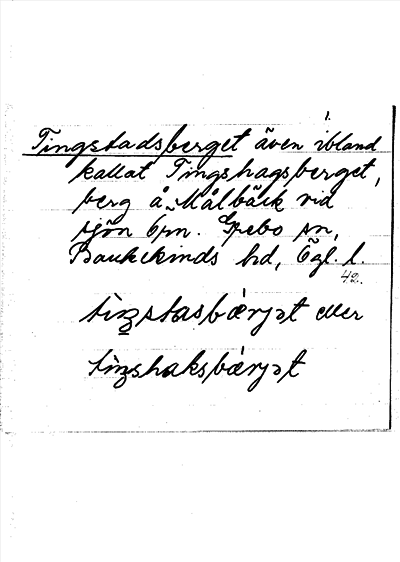 1.
Tingstadsberget även ibland
kallat Tingshagsberget,
berg å Målbäck vid
sjön Örn. Grebo sn,
Bankekinds hd, Ögl. l.
42.
tiŋstasbærjət eller
tiŋshaksbærjət